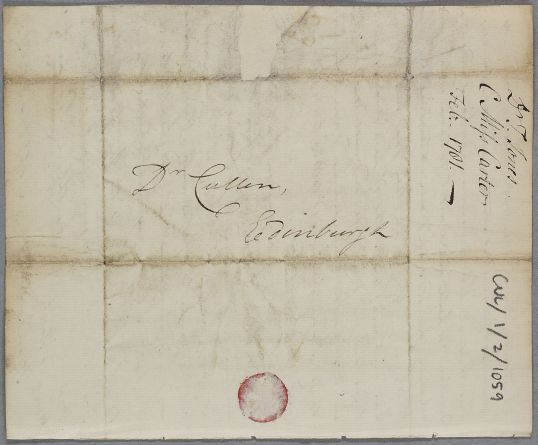 Dr Cullen,
Edinburgh
Dr T. Jones.
C. Miss Carter
Feb. 1781.
CUL/1/2/1059